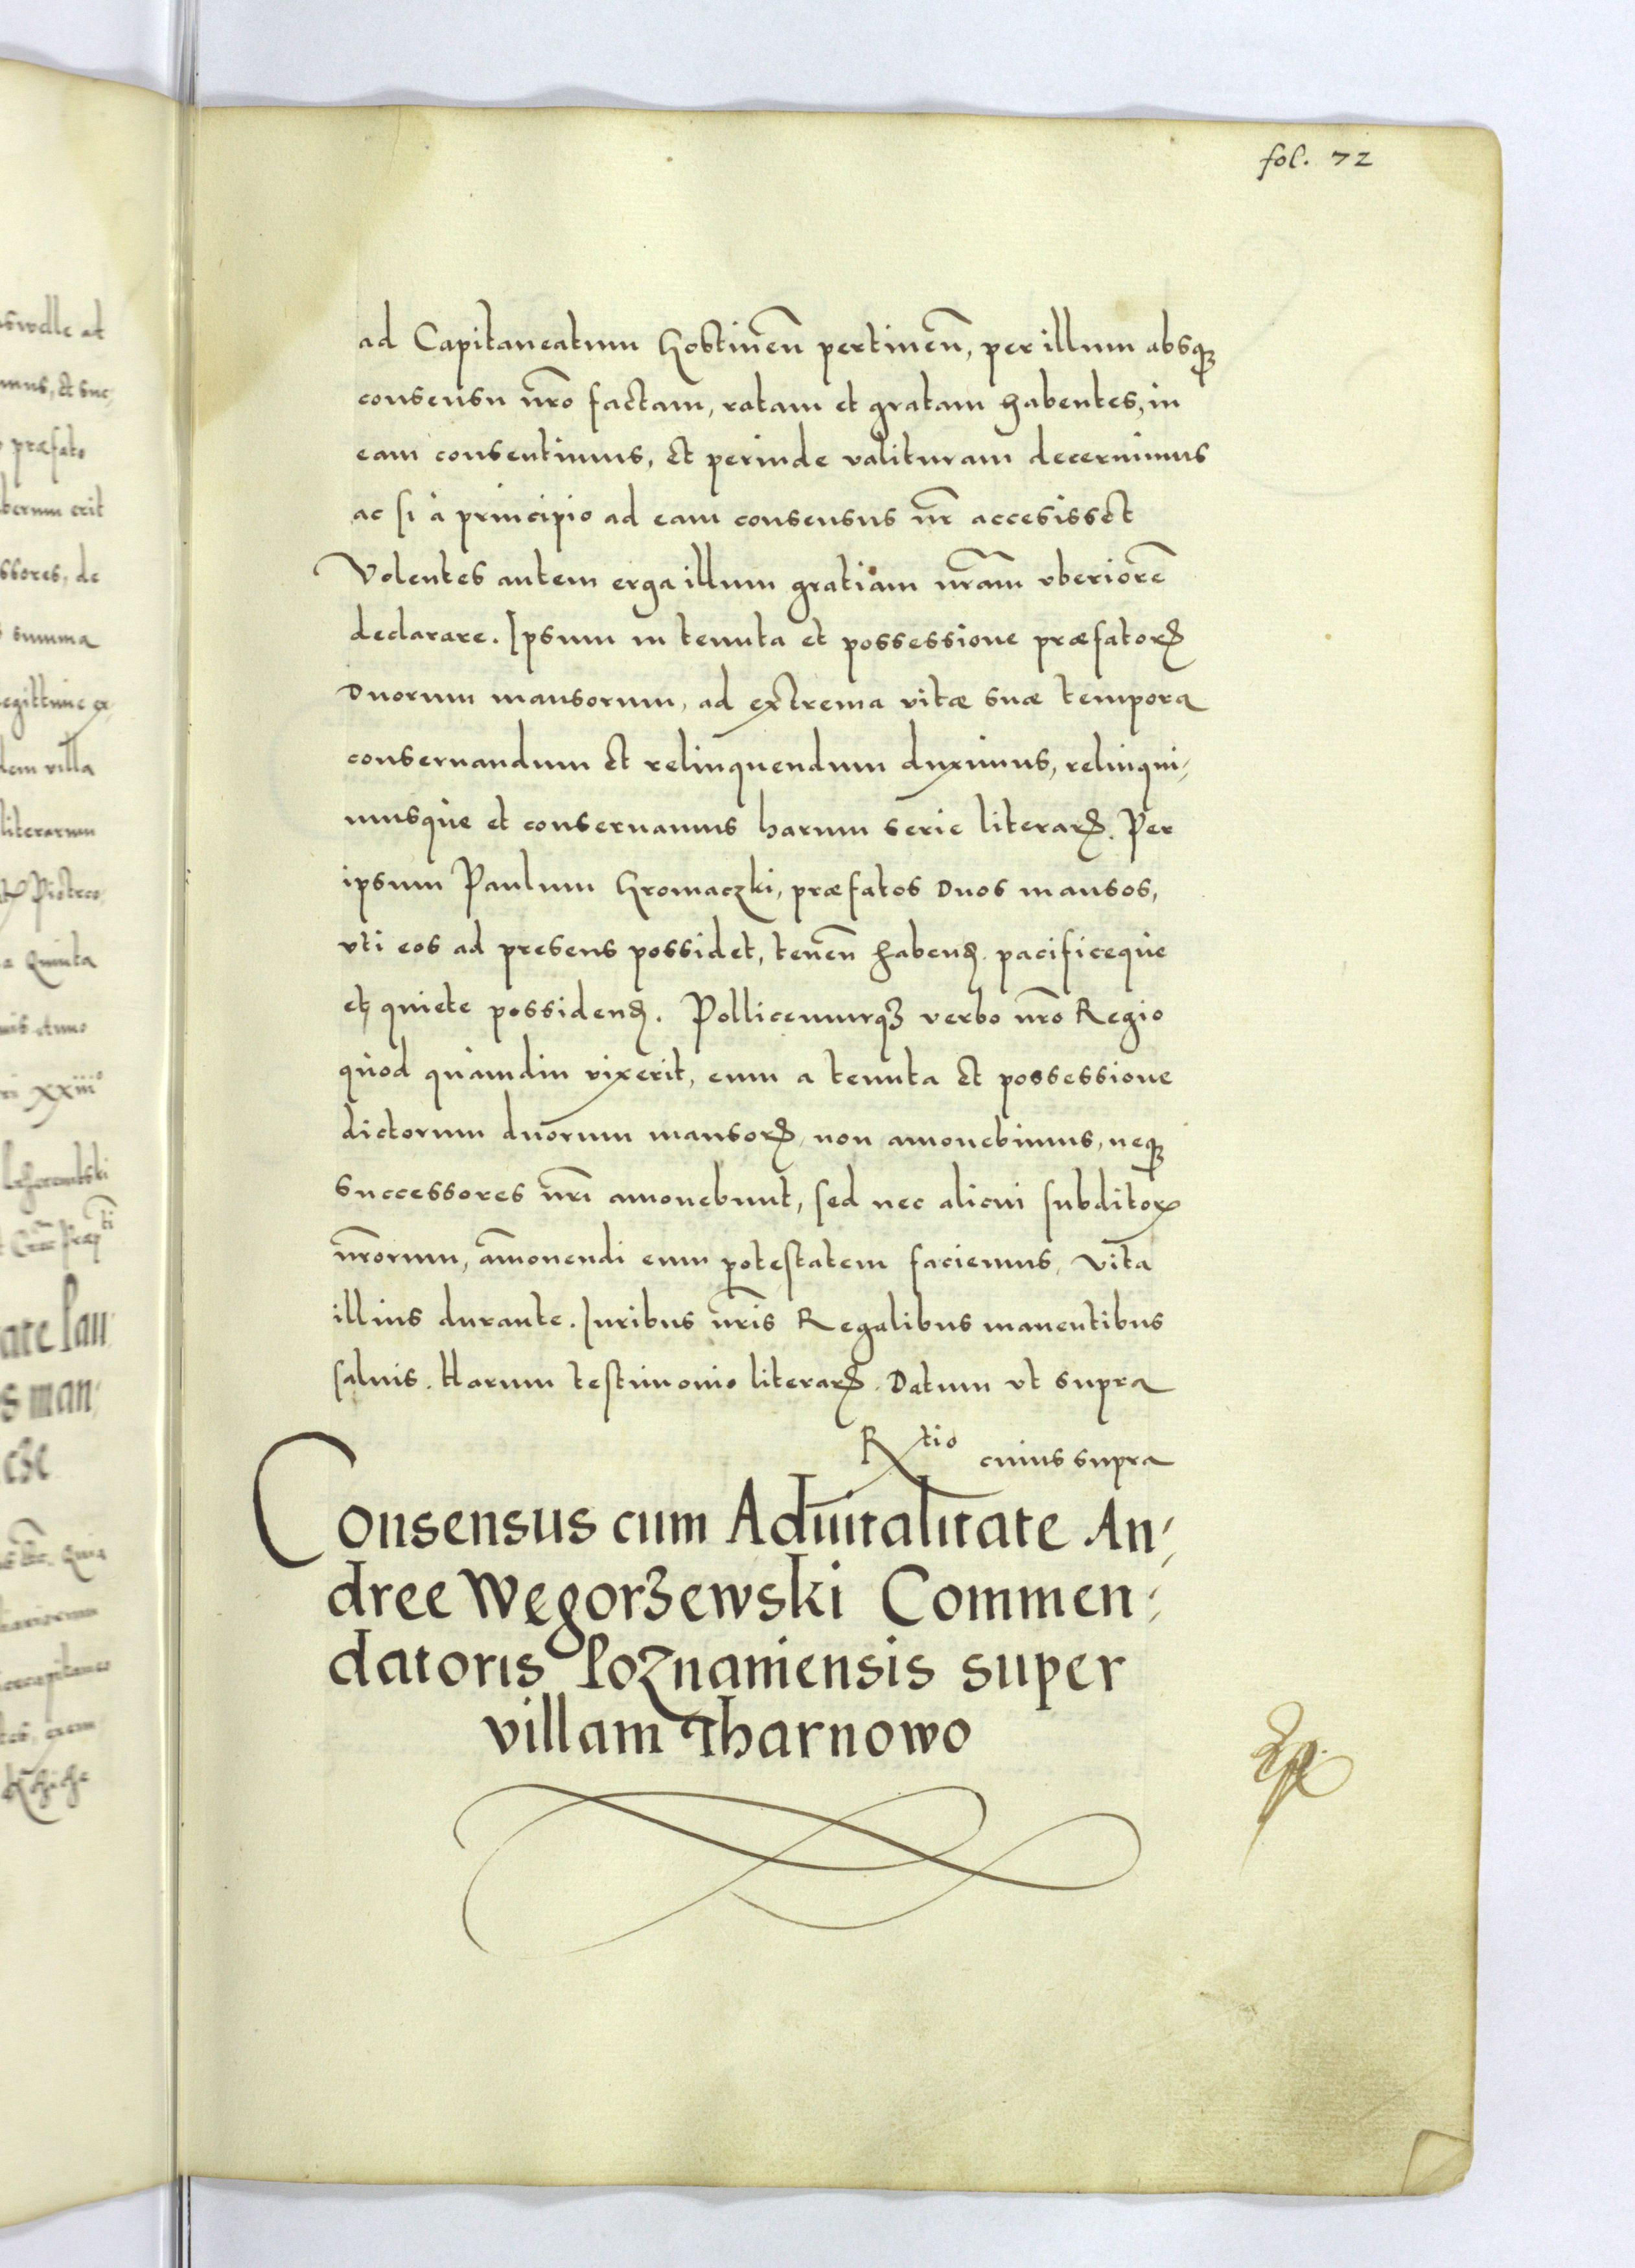 fol. 72
ad Capitaneatum Gostinen̄ pertinen̄, per illum absqꝫ
consensu nr̄o factam, ratam et gratam habentes, in
eam consentimus, et perinde valituram decernimus
ac si à principio ad eam consensus nr̄ accesisset
Volentes autem erga illum gratiam nr̄am vberiorē
declarare. Ipsum in tenuta et possessione præfatorꝝ
Duorum mansorum, ad extrema vitæ suæ tempora
conseruandum et relinquendum duximus, relinqui,
musque et conseruamus harum serie literarꝝ. Per
ipsum Paulum Gromaczki, præfatos Duos mansos,
vti eos ad presens possidet, tenen̄ habenđ. pacificeque
et quiete possidenđ. Pollicemurqꝫ verbo nr̄o Regio
quod quamdiu vixerit, eum a tenuta et possessione
dictorum duorum mansorꝝ, non amouebimus, neqꝫ
successores nr̄i amouebunt, sed nec alicui subditorꝝ
nr̄orum, amouendi eum potestatem faciemus, vita
illius durante. Iuribus nr̄is Regalibus manentibus
saluis. Harum testimonio literarꝝ. Datum vt supra
Rtio cuius supra
Consensus cum Aduitalitate An,
dree Węgorzewski Commen,
datoris Poznaniensis super
villam Tharnowo
aswelle at
mus, et suc,
præfato
berum erit
ssores, de
summa
egittime ex,
dem villa
literarum
Piotrco,
a Quinta
nis Anno
ri xxiiiº
ate Pau
s man,